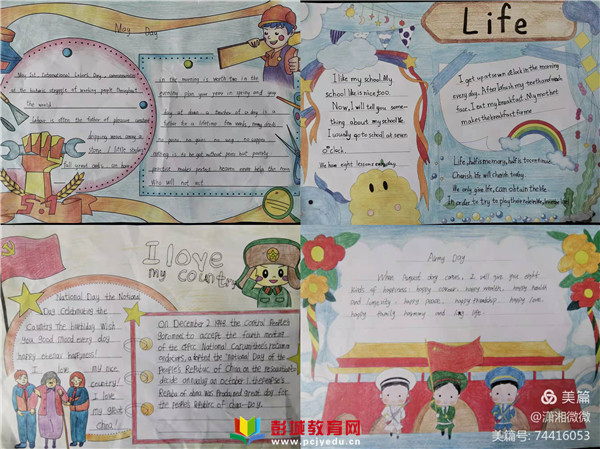 May Day
May 1st, International Labor Day, commemorates
the historic struggle of working people throughout
The world
Labour is often the father of pleasure constant
dripping wears away a
Stone / Little strokes
fell great oaks
5.1
in the morning is worth two in the
evening plan your year in spring and your
day at dawn
father for a lifetime
no pains no gains
Nothing is to be got without pains but poverty
practice makes perfect heaven never help the man
Who will not act
Life
I like my school. My
school like is nice too.
Now, I will tell you some-
thing about my school life
I usually go to school at seven
o'clock.
We have eight lessons everyday.
I get up at seven o'clock in the morning
every day. After I brush my teeth and wash
face. I eat my breakfast. My mother
makes the breakfast for me
Life, half is memory, half is to continue.
Cherish life will cherish today.
He only give life, can obtain the life
In order to try to play their role in life
I love
my country
National Day the National
Day Celebrating the
Country the birthday Wish
you good mood every day
happy everyday happiness!
I love my nice
country!
I love
my great
China!
On December 2 1949, the Central People's
Government to accept the fourth meeting
of the CPPCC National Committee's recomm
endations, adopted the "National Day of the
People's Republic of China on the resolution to
decide on every year October 1, the People's
Republic of China was
the People's Republic of China Day.
Army Day
When August day comes, I will give you eight
kinds of happiness: happy career, happy wealth, happy health
and longevity, happy peace, happy friendship, happy love,
happy family harmony and happy life.
彭城教育网
www.pcjyedu.cn
美篇
@潇湘微微
美篇号: 74416053